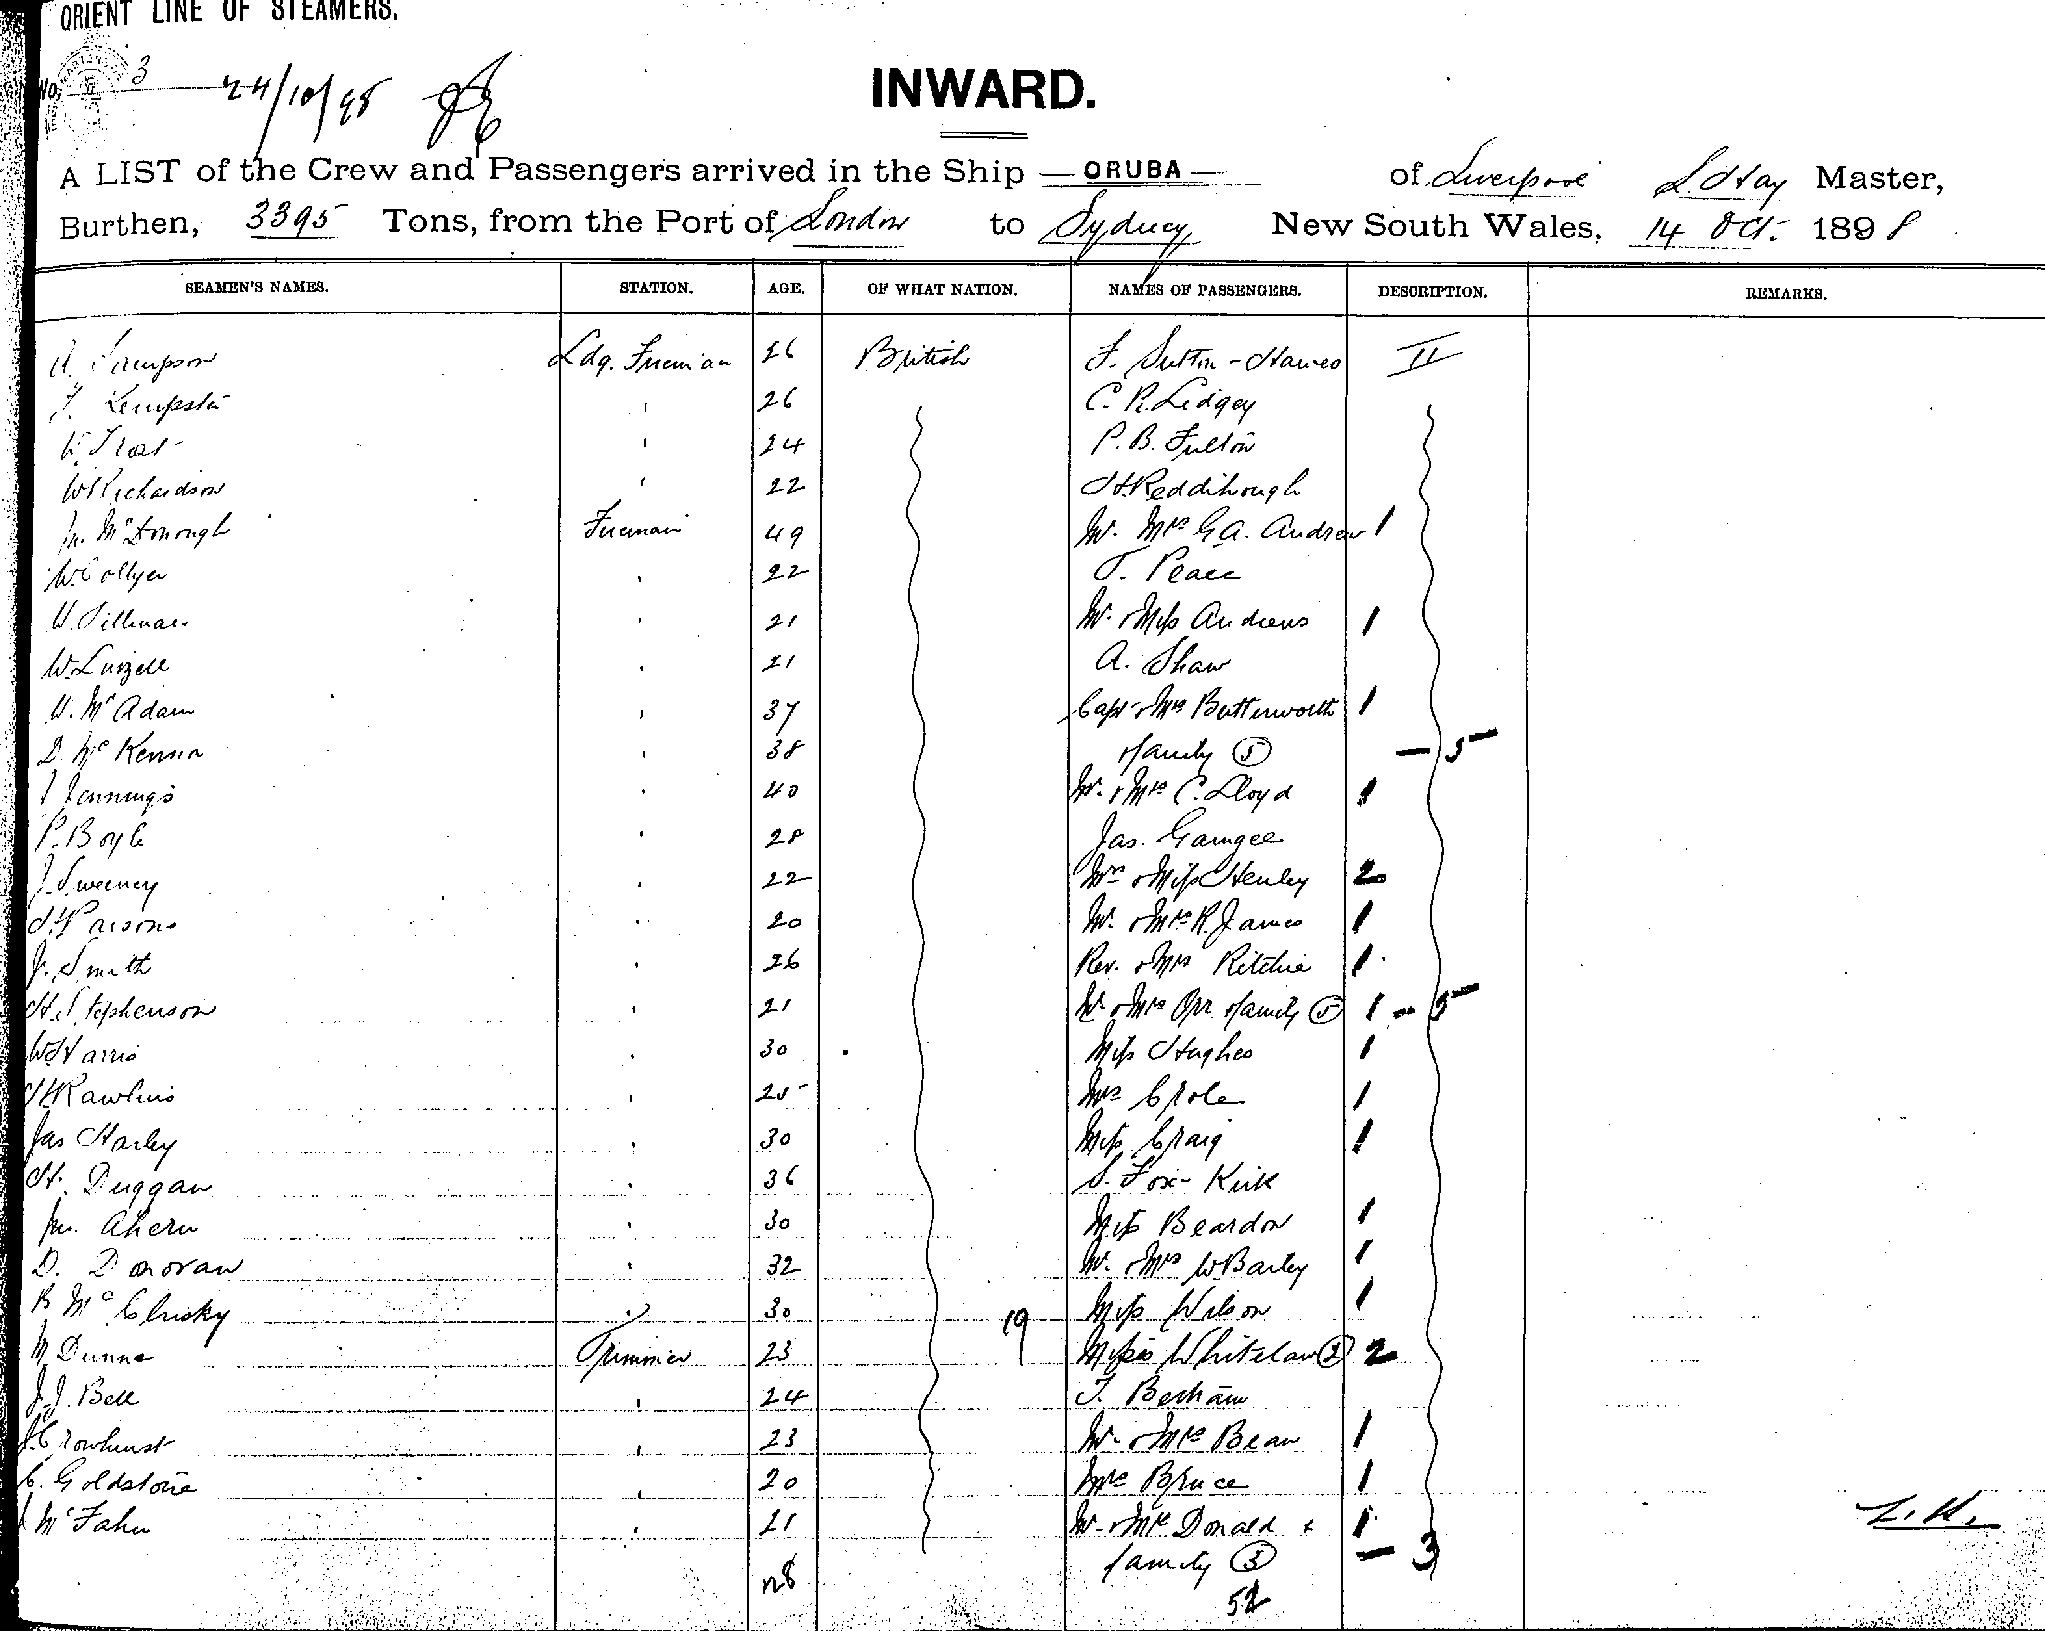 ORIENT LINE OF STEAMERS.
No. 3 24/10/98
INWARD.
A LIST of the Crew and Passengers arrived in the Ship — ORUBA — of Liverpool L. Hay Master,
Burthen, 3395 Tons, from the Port of London to Sydney, New South Wales, 14 Oct. 1898
SEAMEN'S NAMES. STATION. AGE. OF WHAT NATION. NAMES OF PASSENGERS. DESCRIPTION. REMARKS.
A. Sampson Ldg. Fireman 26 British F. Sutton-Hawes II
F. Kempster 26 C. R. Lidgey
Trast 24 P. B. Fulton
W Richardson 22 H. Reddihough
Jn. McDonough Fireman 49 Mr. Mrs G. A. Andrew 1
W. Collyer 22 T. Peace
Tillman 21 Mr. & Miss Andrews 1
W. Luzzell 21 A. Shaw
McAdam 37 Capt & Mrs Butterworth 1
D. McKenna 38 & family (5) — 5 —
J Jennings 40 Mr. & Mrs C. Lloyd 1
P. Boyle 28 Jas. Gamgee
J. Sweeney 22 Mrs & Miss Henley 2
H Parsons 20 Mr. & Mrs R. James 1
J. Smith 26 Rev. & Mrs Ritchie 1
H. Stephenson 21 Mr. & Mrs Orr & family (5) 1 — 5 —
W Harris 30 Miss Hughes 1
H Rawlins 25 Mrs Crole 1
Jas Harley 30 Miss Craig 1
H. Duggan 36 S. Fox-Kirk
Jn. Ahern 30 Miss Beardon 1
D. Donovan 32 Mr. & Mrs W Barley 1
R McClusky 30 Miss Wilson 1
M Dunne Trimmer 23 19 Misses Whitelaw (2) 2
J. J. Bell 24 T. Becham
J. Crowhurst 23 Mr. & Mrs Bean 1
C. Goldstone 20 Mrs Bruce 1
J McFahn 21 Mr. & Mrs Donald & 1
family (3) — 3
n8 52
L.H.